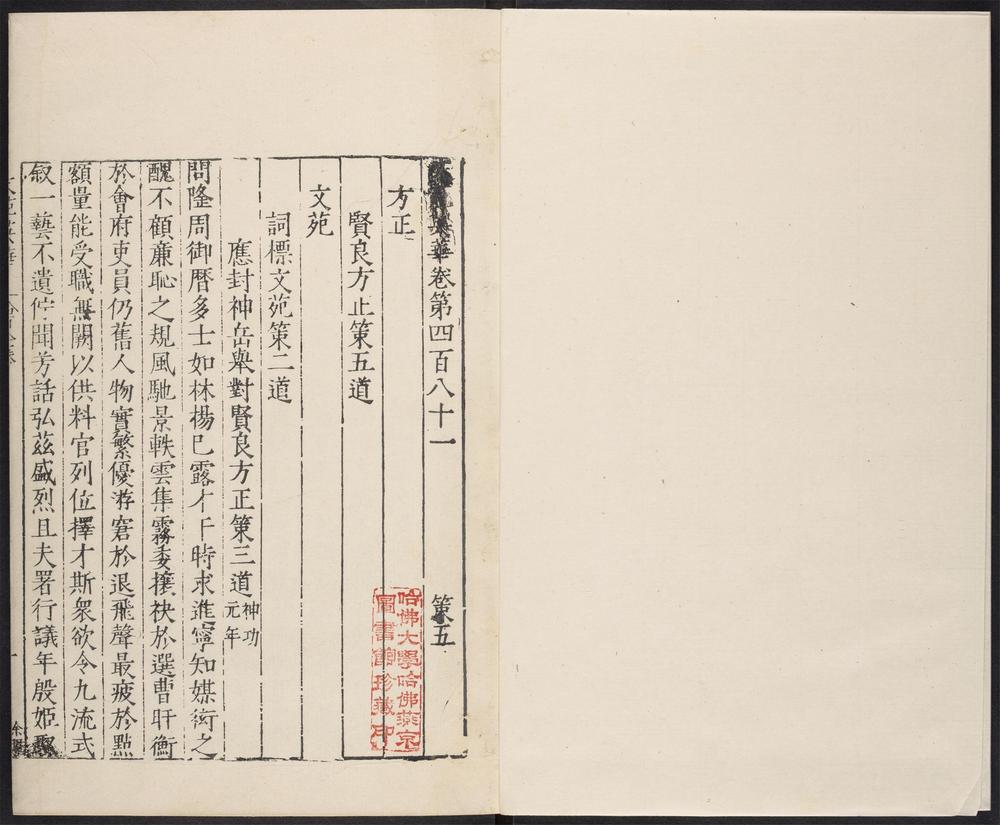 英華卷第四百八十一 策五
方正
賢良方正策五道
文苑
詞標文苑策二道
應封神岳舉對賢良方正策三道 神功元年
問隆周御曆多士如林揚己露才干時求進寧知媒衒之
醜不顧廉恥之規風馳景軼雲集霧委攘袂於選曹盱衡
於會府吏員仍舊人物實繁優游窘於退飛聲最疲於點
額量能受職無闕以供料官列位擇才斯衆欲令九流式
叙一藝不遺佇聞芳話弘茲盛烈且夫署行議年殷姬
哈佛大學哈佛燕京
圖書館珍藏印